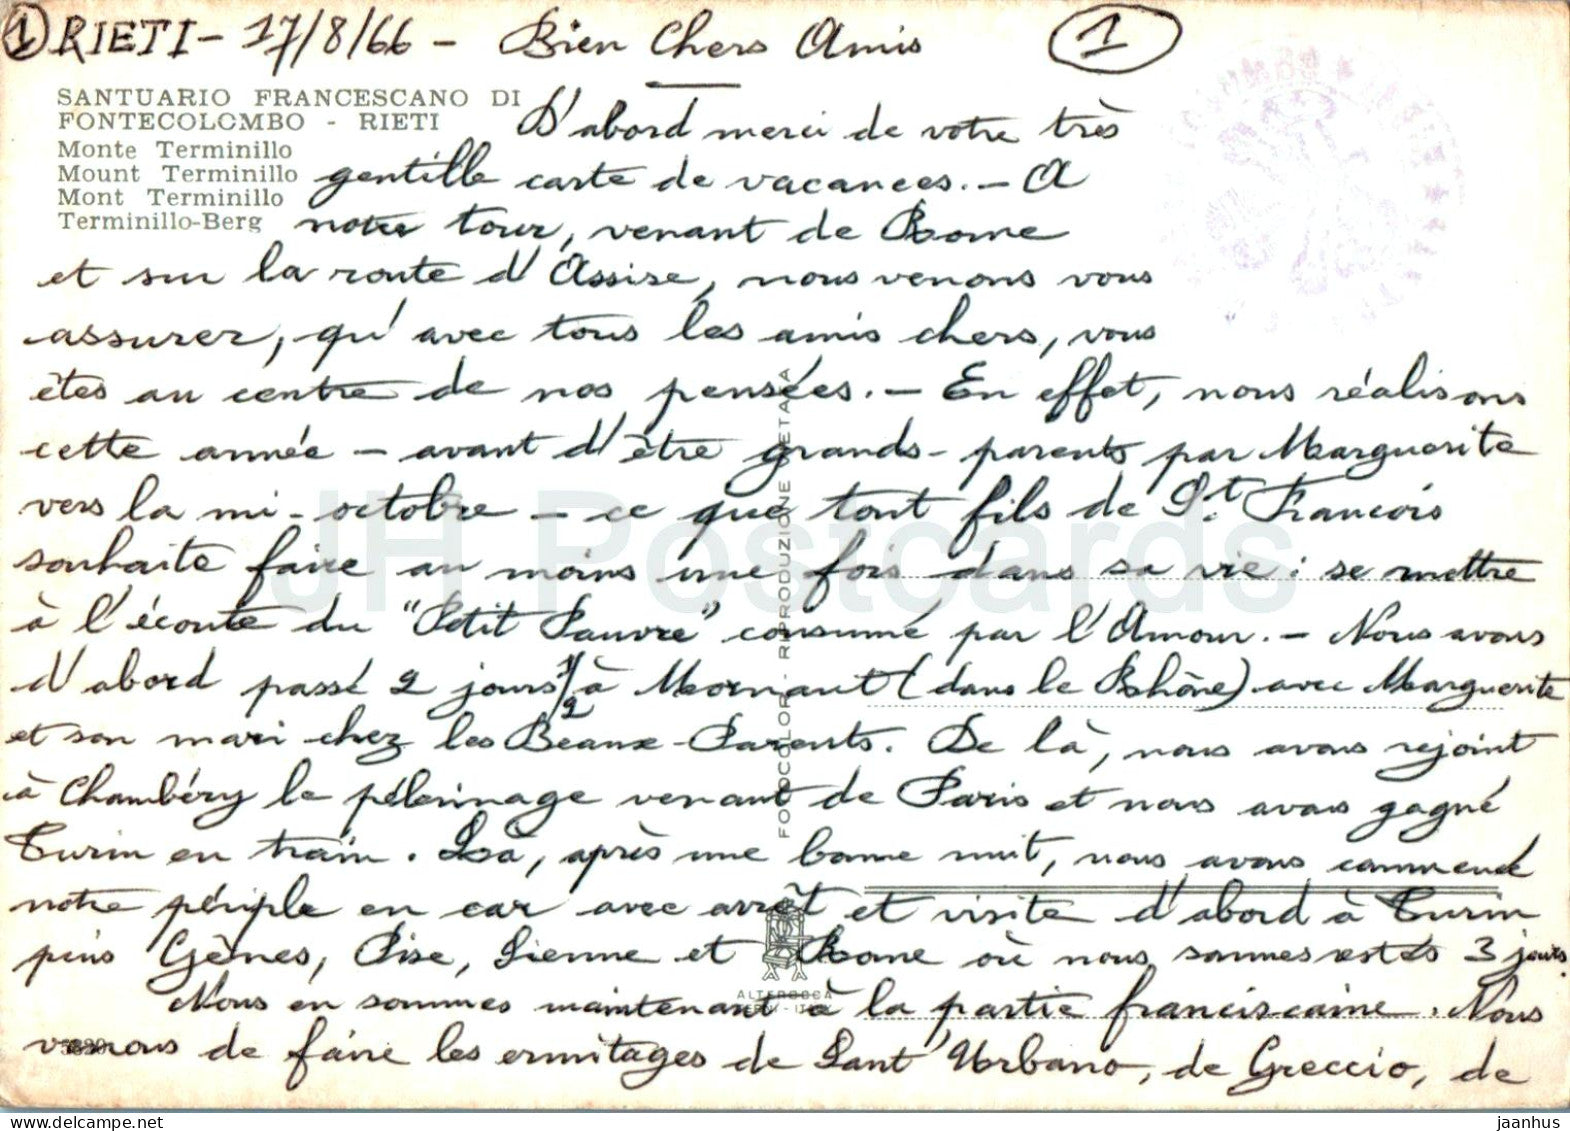 ① RIETI - 17/8/66 - Bien Chers Amis ①
SANTUARIO FRANCESCANO DI
FONTECOLOMBO - RIETI
Monte Terminillo
Mount Terminillo
Mont Terminillo
Terminillo-Berg
D'abord merci de votre très
gentille carte de vacances. - A
notre tour, venant de Rome
et sur la route d'Assise, nous venons vous
assurer, qu'avec tous les amis chers, vous
êtes au centre de nos pensées. - En effet, nous réalisons
cette année - avant d'être grands-parents par Marguerite
vers la mi-octobre - ce que tout fils de St. François
souhaite faire au moins une fois dans sa vie : se mettre
à l'écoute du "Petit Pauvre" consumé par l'Amour. - Nous avons
d'abord passé 2 jours 1/2 à Mornant (dans le Rhône) avec Marguerite
et son mari chez les Beaux-Parents. De là, nous avons rejoint
à Chambéry le pélerinage venant de Paris et nous avons gagné
Turin en train. Là, après une bonne nuit, nous avons commencé
notre périple en car avec arrêt et visite d'abord à Turin
puis Gênes, Pise, Sienne et Rome où nous sommes restés 3 jours.
Nous en sommes maintenant à la partie franciscaine. Nous
venons de faire les ermitages de Sant'Urbano, de Greccio, de
FOTOCOLOR - RIPRODUZIONE VIETATA
ALTEROCCA
TERNI - ITALY
JH Postcards
jaanhus